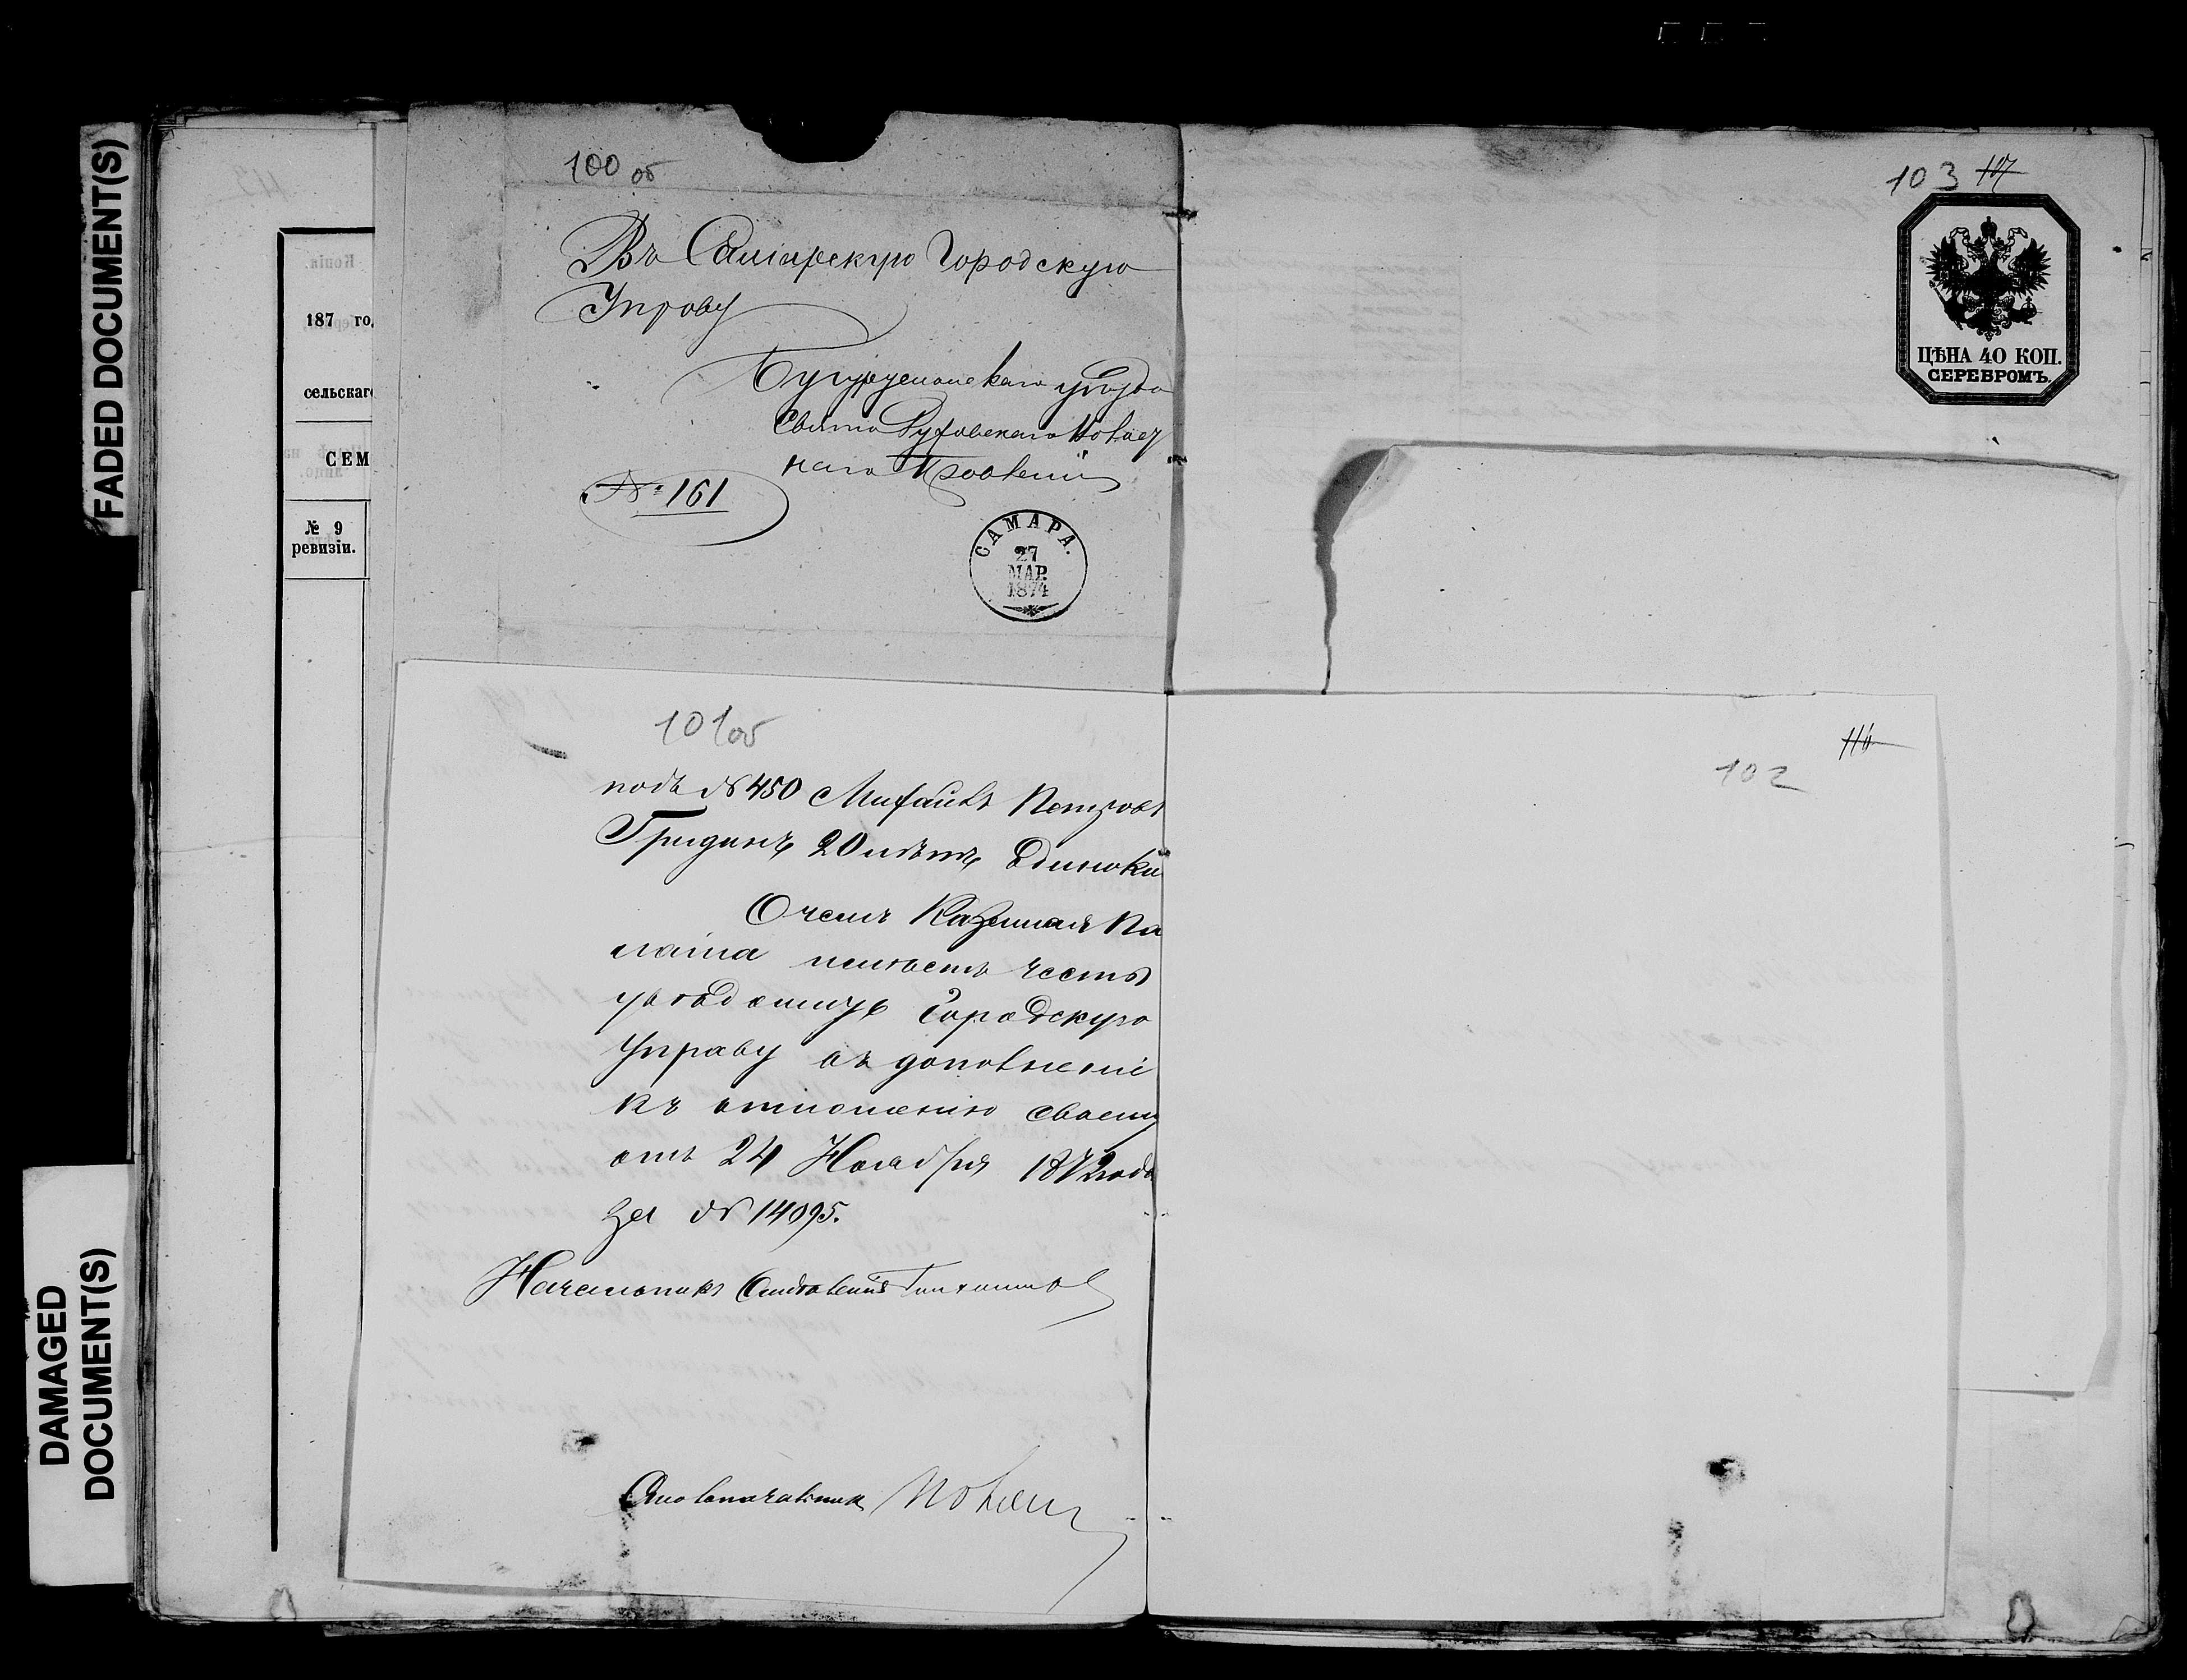 FADED DOCUMENT(S)
DAMAGED
DOCUMENT(S)
187 го
сельскаг
СЕМ
№ 9
ревизіи.
100 об
Въ Самарскую Городскую
Управу
Бугурусланскаго уѣзда
Свято Духовскаго Волост
наго Правленія
№ 161
САМАРА.
27
МАР.
1874
101 об
подъ № 450 Михаилъ Петровъ
Гридинъ 20 лѣтъ, Одинокій
О чемъ Казенная Па
лата имѣетъ честь
увѣдомить Городскую
Управу въ дополненіе
къ отношенію своему
отъ 24 Ноября 1872 года
за № 14095.
Начальникъ Отдѣленія
Столоначальникъ
103 117
ЦѢНА 40 КОП.
СЕРЕБРОМЪ.
116
102